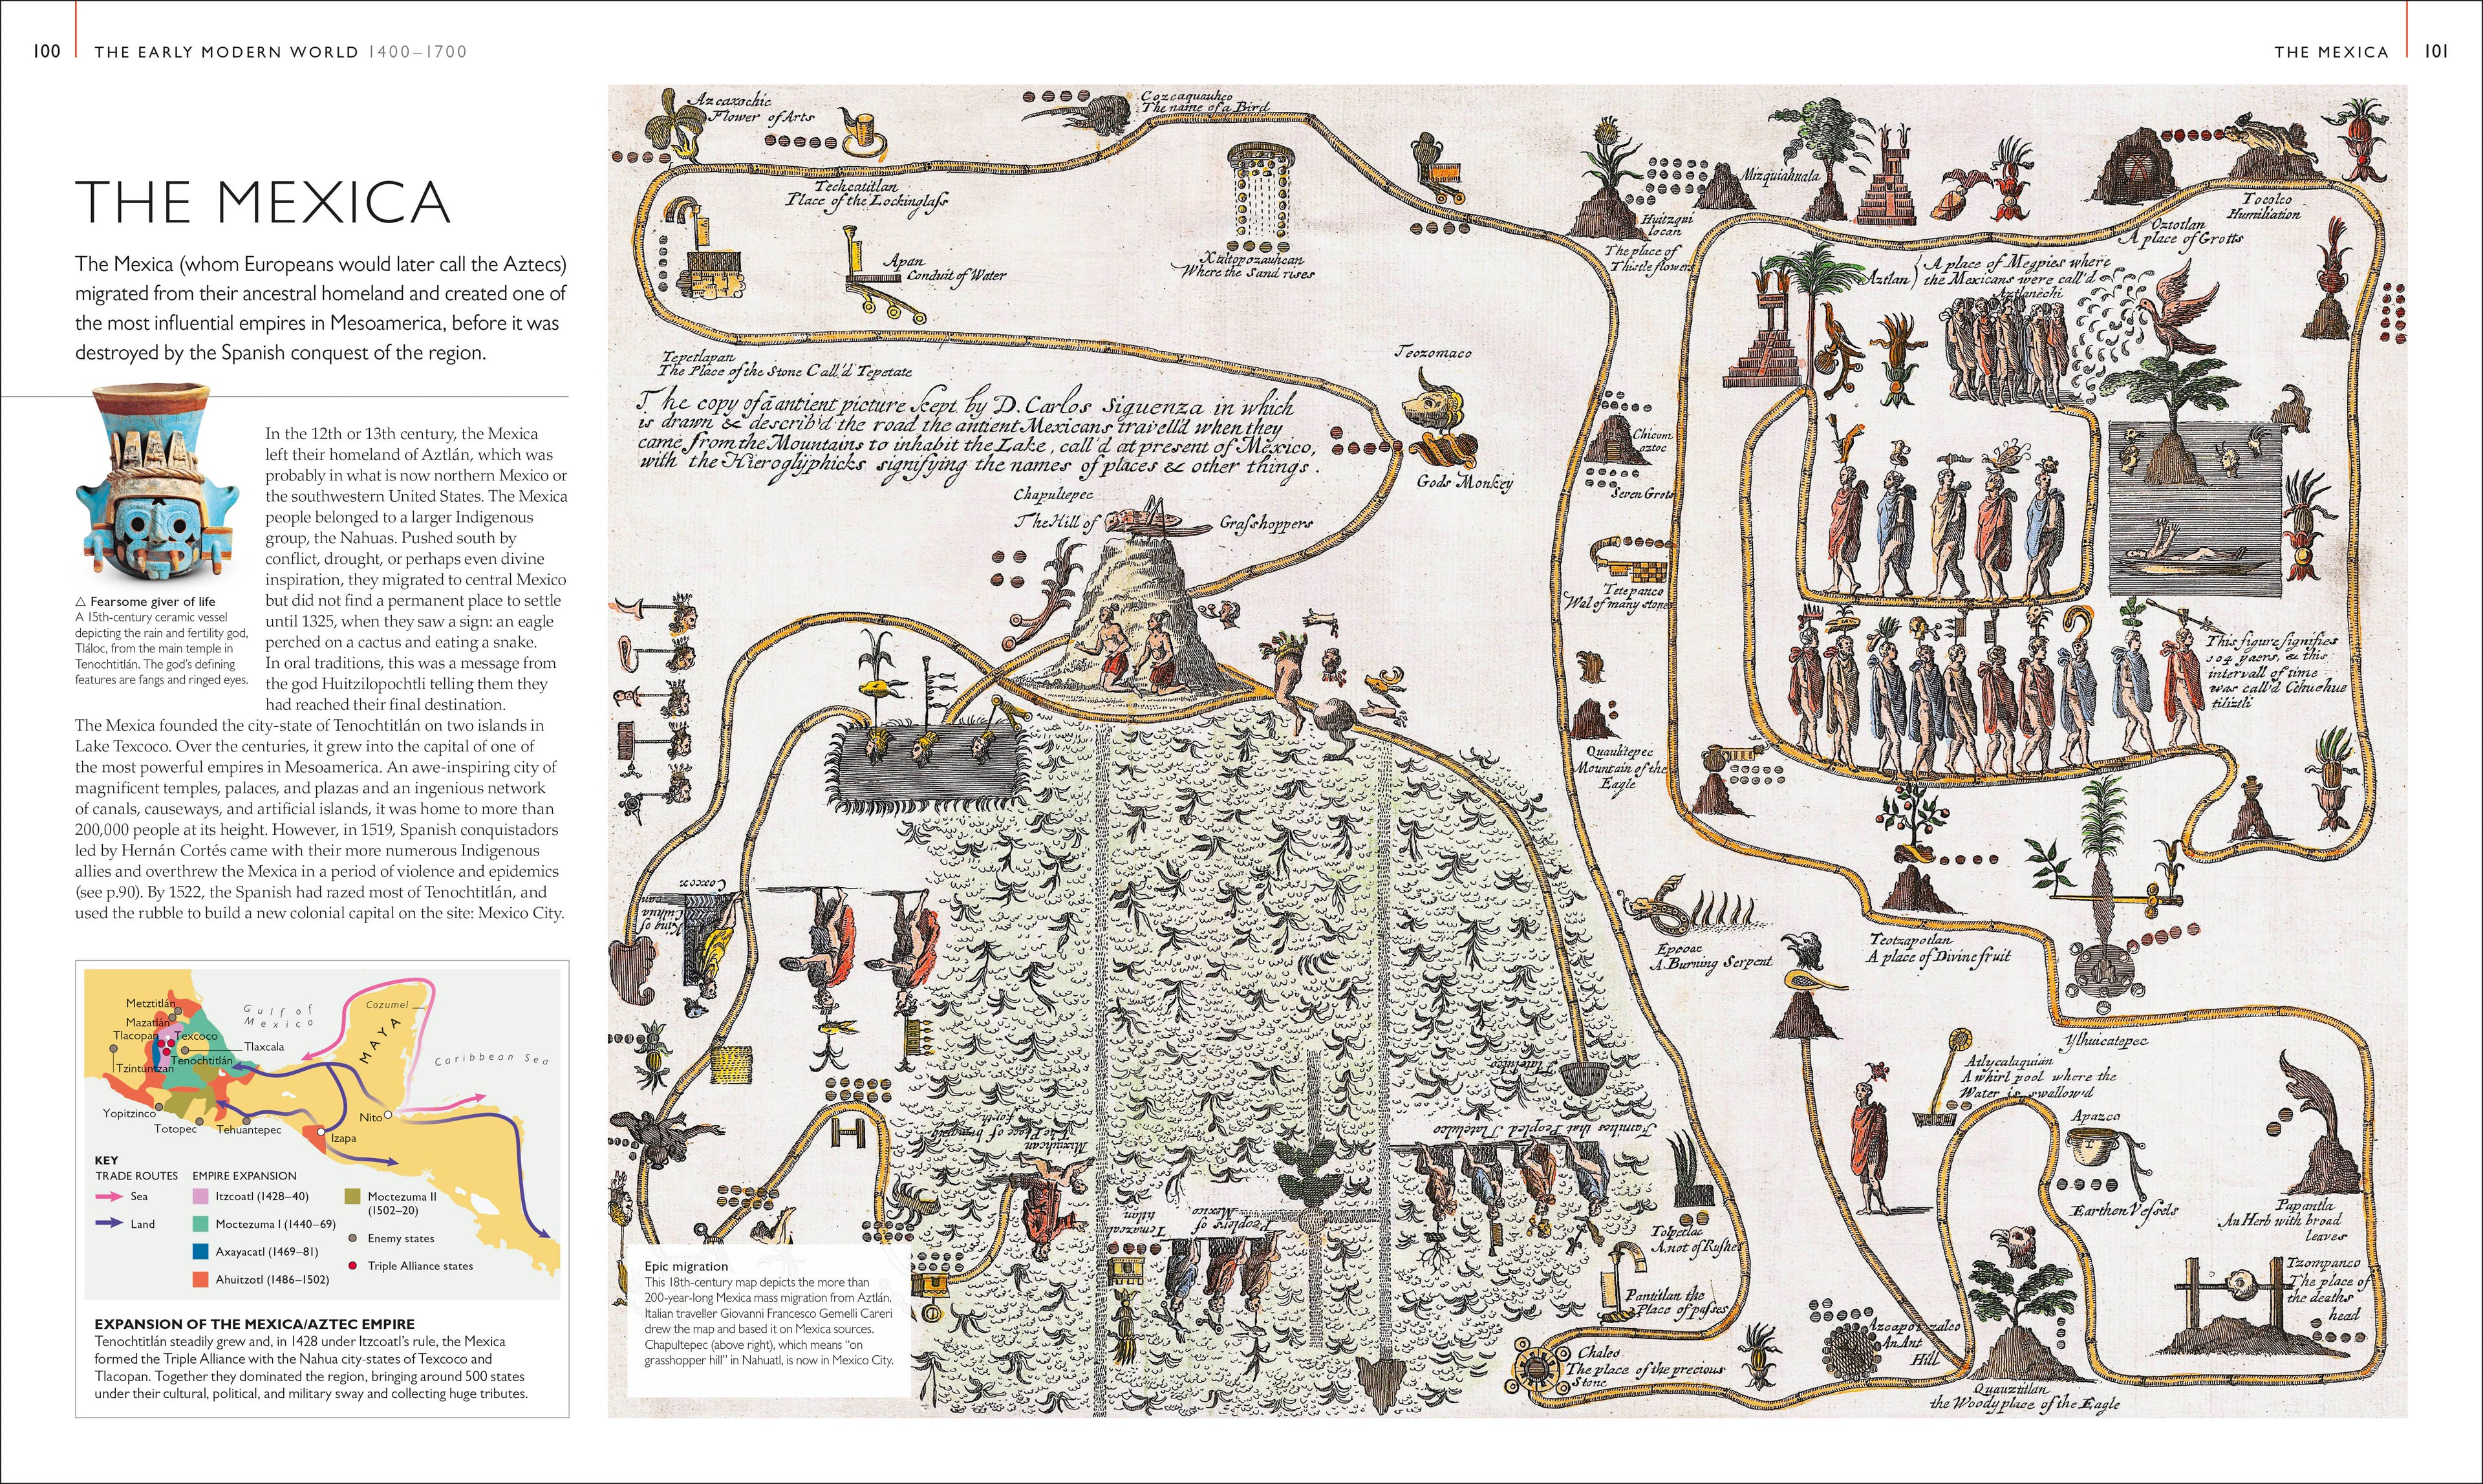 100
THE EARLY MODERN WORLD 1400–1700
THE MEXICA
101
THE MEXICA
The Mexica (whom Europeans would later call the Aztecs)
migrated from their ancestral homeland and created one of
the most influential empires in Mesoamerica, before it was
destroyed by the Spanish conquest of the region.
In the 12th or 13th century, the Mexica
left their homeland of Aztlán, which was
probably in what is now northern Mexico or
the southwestern United States. The Mexica
people belonged to a larger Indigenous
group, the Nahuas. Pushed south by
conflict, drought, or perhaps even divine
inspiration, they migrated to central Mexico
but did not find a permanent place to settle
until 1325, when they saw a sign: an eagle
perched on a cactus and eating a snake.
In oral traditions, this was a message from
the god Huitzilopochtli telling them they
had reached their final destination.
The Mexica founded the city-state of Tenochtitlán on two islands in
Lake Texcoco. Over the centuries, it grew into the capital of one of
the most powerful empires in Mesoamerica. An awe-inspiring city of
magnificent temples, palaces, and plazas and an ingenious network
of canals, causeways, and artificial islands, it was home to more than
200,000 people at its height. However, in 1519, Spanish conquistadors
led by Hernán Cortés came with their more numerous Indigenous
allies and overthrew the Mexica in a period of violence and epidemics
(see p.90). By 1522, the Spanish had razed most of Tenochtitlán, and
used the rubble to build a new colonial capital on the site: Mexico City.
△ Fearsome giver of life
A 15th-century ceramic vessel
depicting the rain and fertility god,
Tláloc, from the main temple in
Tenochtitlán. The god's defining
features are fangs and ringed eyes.
Metztitlán
Mazatlán
Tlacopan
Texcoco
Tlaxcala
Tenochtitlán
Tzintúntzan
Yopitzinco
Totopec
Tehuantepec
Gulf of
Mexico
Cozumel
MAYA
Caribbean Sea
Nito
Izapa
KEY
TRADE ROUTES
Sea
Land
EMPIRE EXPANSION
Itzcoatl (1428–40)
Moctezuma I (1440–69)
Axayacatl (1469–81)
Ahuitzotl (1486–1502)
Moctezuma II
(1502–20)
Enemy states
Triple Alliance states
EXPANSION OF THE MEXICA/AZTEC EMPIRE
Tenochtitlán steadily grew and, in 1428 under Itzcoatl's rule, the Mexica
formed the Triple Alliance with the Nahua city-states of Texcoco and
Tlacopan. Together they dominated the region, bringing around 500 states
under their cultural, political, and military sway and collecting huge tributes.
Azcaxochic
Flower of Arts
Cozcaquauhco
The name of a Bird
Techcatitlan
Place of the Lockinglass
Apan
Conduit of Water
Xaltopozauhcan
Where the Sand rises
Tepetlapan
The Place of the Stone Call'd Tepetate
The copy of ā antient picture kept by D. Carlos Siguenza in which
is drawn & describ'd the road the antient Mexicans travell'd when they
came from the Mountains to inhabit the Lake, call'd at present of Mexico,
with the Hieroglyphicks signifying the names of places & other things.
Teozomaco
Gods Monkey
Chapultepec
The Hill of Grasshoppers
Huitzqui
locan
The place of
Thistle flowers
Mizquiahuala
Oztotlan
A place of Grotts
Tocolco
Humiliation
Aztlan
A place of Megpies where
the Mexicans were call'd
Aztlanechi
Chicom
oztoc
Seven Grots
Tetepanco
Wal of many stones
Quauhtepec
Mountain of the
Eagle
This figure signifies
104 yaers, & this
intervall of time
was call'd Cihuehue
tiliztli
Epcoac
A Burning Serpent
Teotzapotlan
A place of Divine fruit
Ylhuicatepec
Atlycalaquian
A whirl pool where the
Water is swallow'd
Apazco
Earthen Vessels
Papantla
An Herb with broad
leaves
Tzompanco
The place of
the deaths
head
Azcapotzalco
An Ant
Hill
Quauztitlan
the Woody place of the Eagle
Tolpetlac
A not of Rushes
Pantitlan the
Place of passes
Chalco
The place of the precious
Stone
Coxcox
King of
Culhua
can
Tlatelulco
Families that Peopled Tlatelulco
The Place of bringing
forth
Temazcal
titlan
Peoplers of
Mexico
Epic migration
This 18th-century map depicts the more than
200-year-long Mexica mass migration from Aztlán.
Italian traveller Giovanni Francesco Gemelli Careri
drew the map and based it on Mexica sources.
Chapultepec (above right), which means "on
grasshopper hill" in Nahuatl, is now in Mexico City.